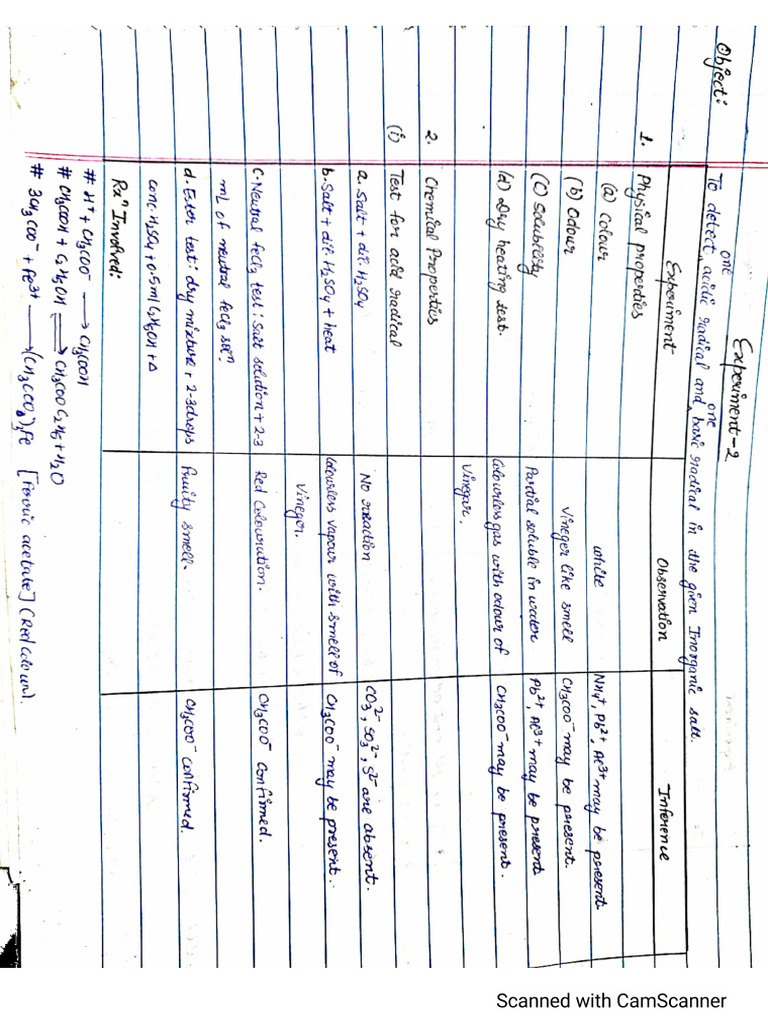 Experiment-2
Object: To detect one acidic radical and one basic radical in the given Inorganic salt.
Experiment Observation Inference
1. Physical properties
(a) colour white NH4+, Pb2+, Al3+ may be present.
(b) Odour Vineger like smell CH3COO- may be present.
(c) Solubility Partial soluble in water Pb2+, Al3+ may be present
(d) Dry heating test. Colourless gas with odour of CH3COO- may be present.
vinegar.
2. Chemical Properties
(i) Test for acid radical
a. Salt + dil. H2SO4 No reaction CO3 2-, SO3 2-, S2- are absent.
b. Salt + dil. H2SO4 + heat Colourless vapour with smell of CH3COO- may be present.
Vineger.
c. Neutral FeCl3 test: Salt solution + 2-3 Red Colouration. CH3COO- Confirmed.
mL of neutral FeCl3 solⁿ.
d. Ester test: dry mixture + 2-3 drops Fruity smell. CH3COO- confirmed.
conc. H2SO4 + 0.5ml C2H5OH + Δ
Rxⁿ Involved:
# H+ + CH3COO- ⟶ CH3COOH
# CH3COOH + C2H5OH ⇌ CH3COOC2H5 + H2O
# 3CH3COO- + Fe3+ ⟶ (CH3COO)3Fe [Ferric acetate] (Red colour).
Scanned with CamScanner